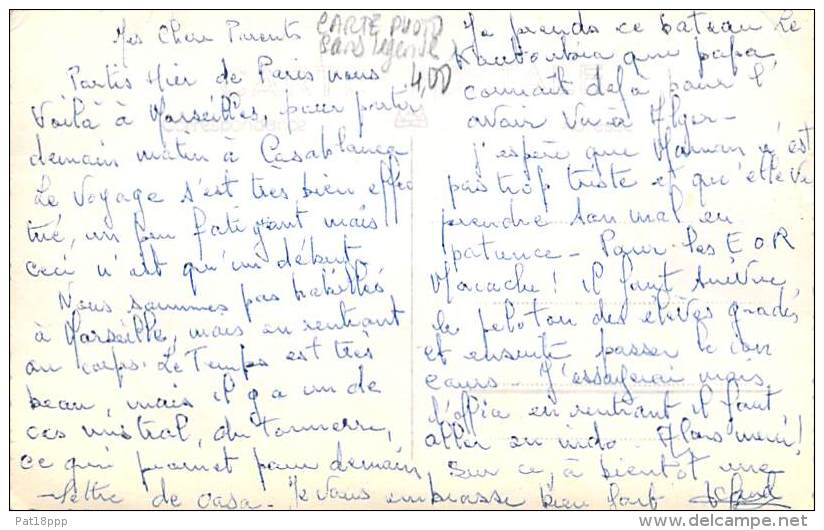 Mes Chers Parents
CARTE PHOTO
sans légende
4,00
Partis Hier de Paris nous
voilà à Marseilles, pour partir
demain matin à Casablanca
Le voyage s'est très bien effec
tué, un peu fatigant mais
ceci n'est qu'un début.
Nous sommes pas habillés
à Marseille, mais en rentrant
au corps. Le Temps est très
beau, mais il y a un de
ces mistral, du tonnerre,
ce qui promet pour demain
Je prends ce bateau Le
que papa
connait dejà pour l'
avoir vu à Alger -
j'espère que Maman n'est
pas trop triste et qu'elle va
prendre son mal en
patience - Pour les E O R
Macache! Il faut suivre
le peloton des élèves gradés
et ensuite passer le con
cours - J'essayerai mais
en rentrant il faut
aller en indo. Alors merci!
Sur ce, à bientôt une
lettre de casa - Je vous embrasse bien fort
Pat18ppp
delcampe.net